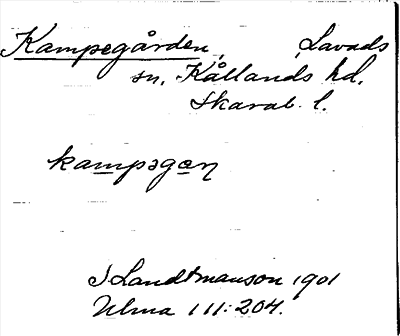 Kampegården, Lavads
sn, Kållands hd.
Skarab. l.
kampəgɑn
S Landtmanson 1901
Ulma 111:204.